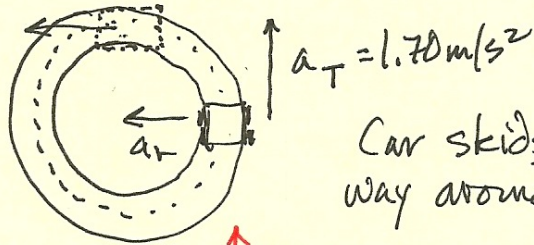 a_T = 1.70 m/s²
a_r
Car skids
way around